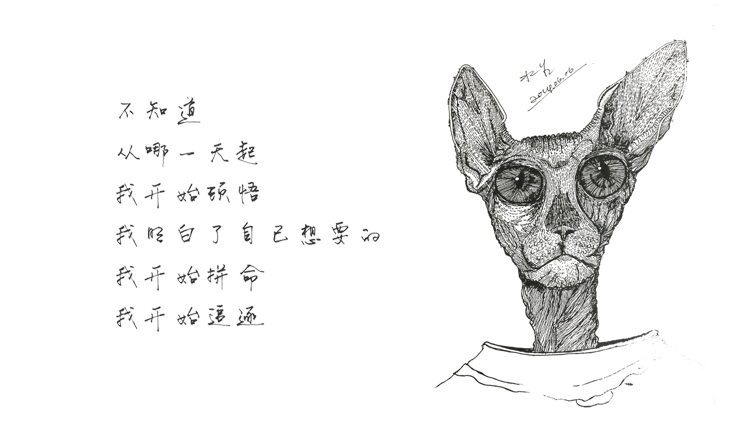 不知道
从哪一天起
我开始顿悟
我明白了自己想要的
我开始拼命
我开始追逐
2014.06.06